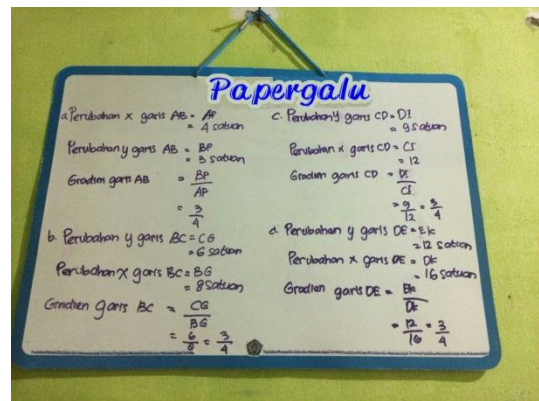 Papergalu
a. Perubahan x garis AB = AP
= 4 satuan
Perubahan y garis AB = BP
= 3 satuan
Gradien garis AB = BP
AP
= 3
4
b. Perubahan y garis BC = CG
= 6 satuan
Perubahan x garis BC = BG
= 8 satuan
Gradien garis BC = CG
BG
= 6/8 = 3/4
c. Perubahan y garis CD = DI
= 9 satuan
Perubahan x garis CD = CI
= 12
Gradien garis CD = DI
CI
= 9/12 = 3/4
d. Perubahan y garis DE = EK
= 12 satuan
Perubahan x garis DE = DK
= 16 satuan
Gradien garis DE = EK
DK
= 12/16 = 3/4